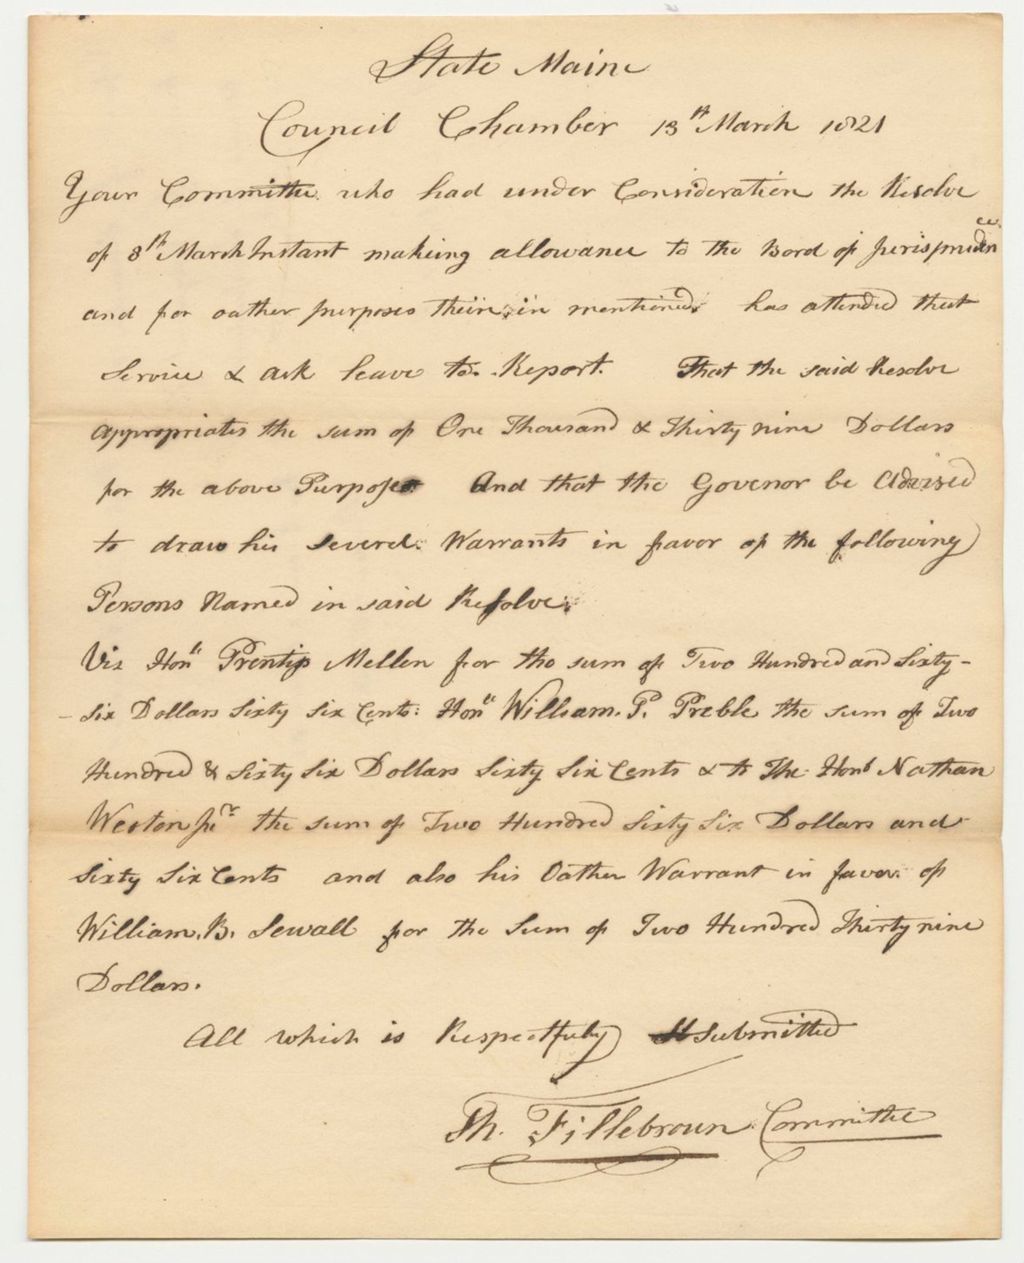 State Maine
Council Chamber 13th March 1821
Your Committe who had under Consideration the Resolve
of 8th March Instant making allowance to the Bord of Jurisprudence
and for oather purposes their,in mentioned has attended that
Service & ask leave to Report. That the said Resolve
appropriates the sum of One Thousand & Thirty nine Dollars
for the above Purposes And that the Govenor be Advised
to draw his several Warrants in favor of the following
Persons Named in said Resolve.
Viz Honl Prentiss Mellen for the sum of Two Hundred and Sixty-
-Six Dollars Sixty Six Cents: Honl William. P. Preble the sum of Two
Hundred & Sixty Six Dollars Sixty Six Cents & to The Honl Nathan
Weston Jr the sum of Two Hundred Sixty Six Dollars and
Sixty Six Cents and also his Oather Warrant in favor of
William. B. Sewall for the Sum of Two Hundred Thirty nine
Dollars.
All which is Respectfuly Submitted
Th. Fillebroun Committee